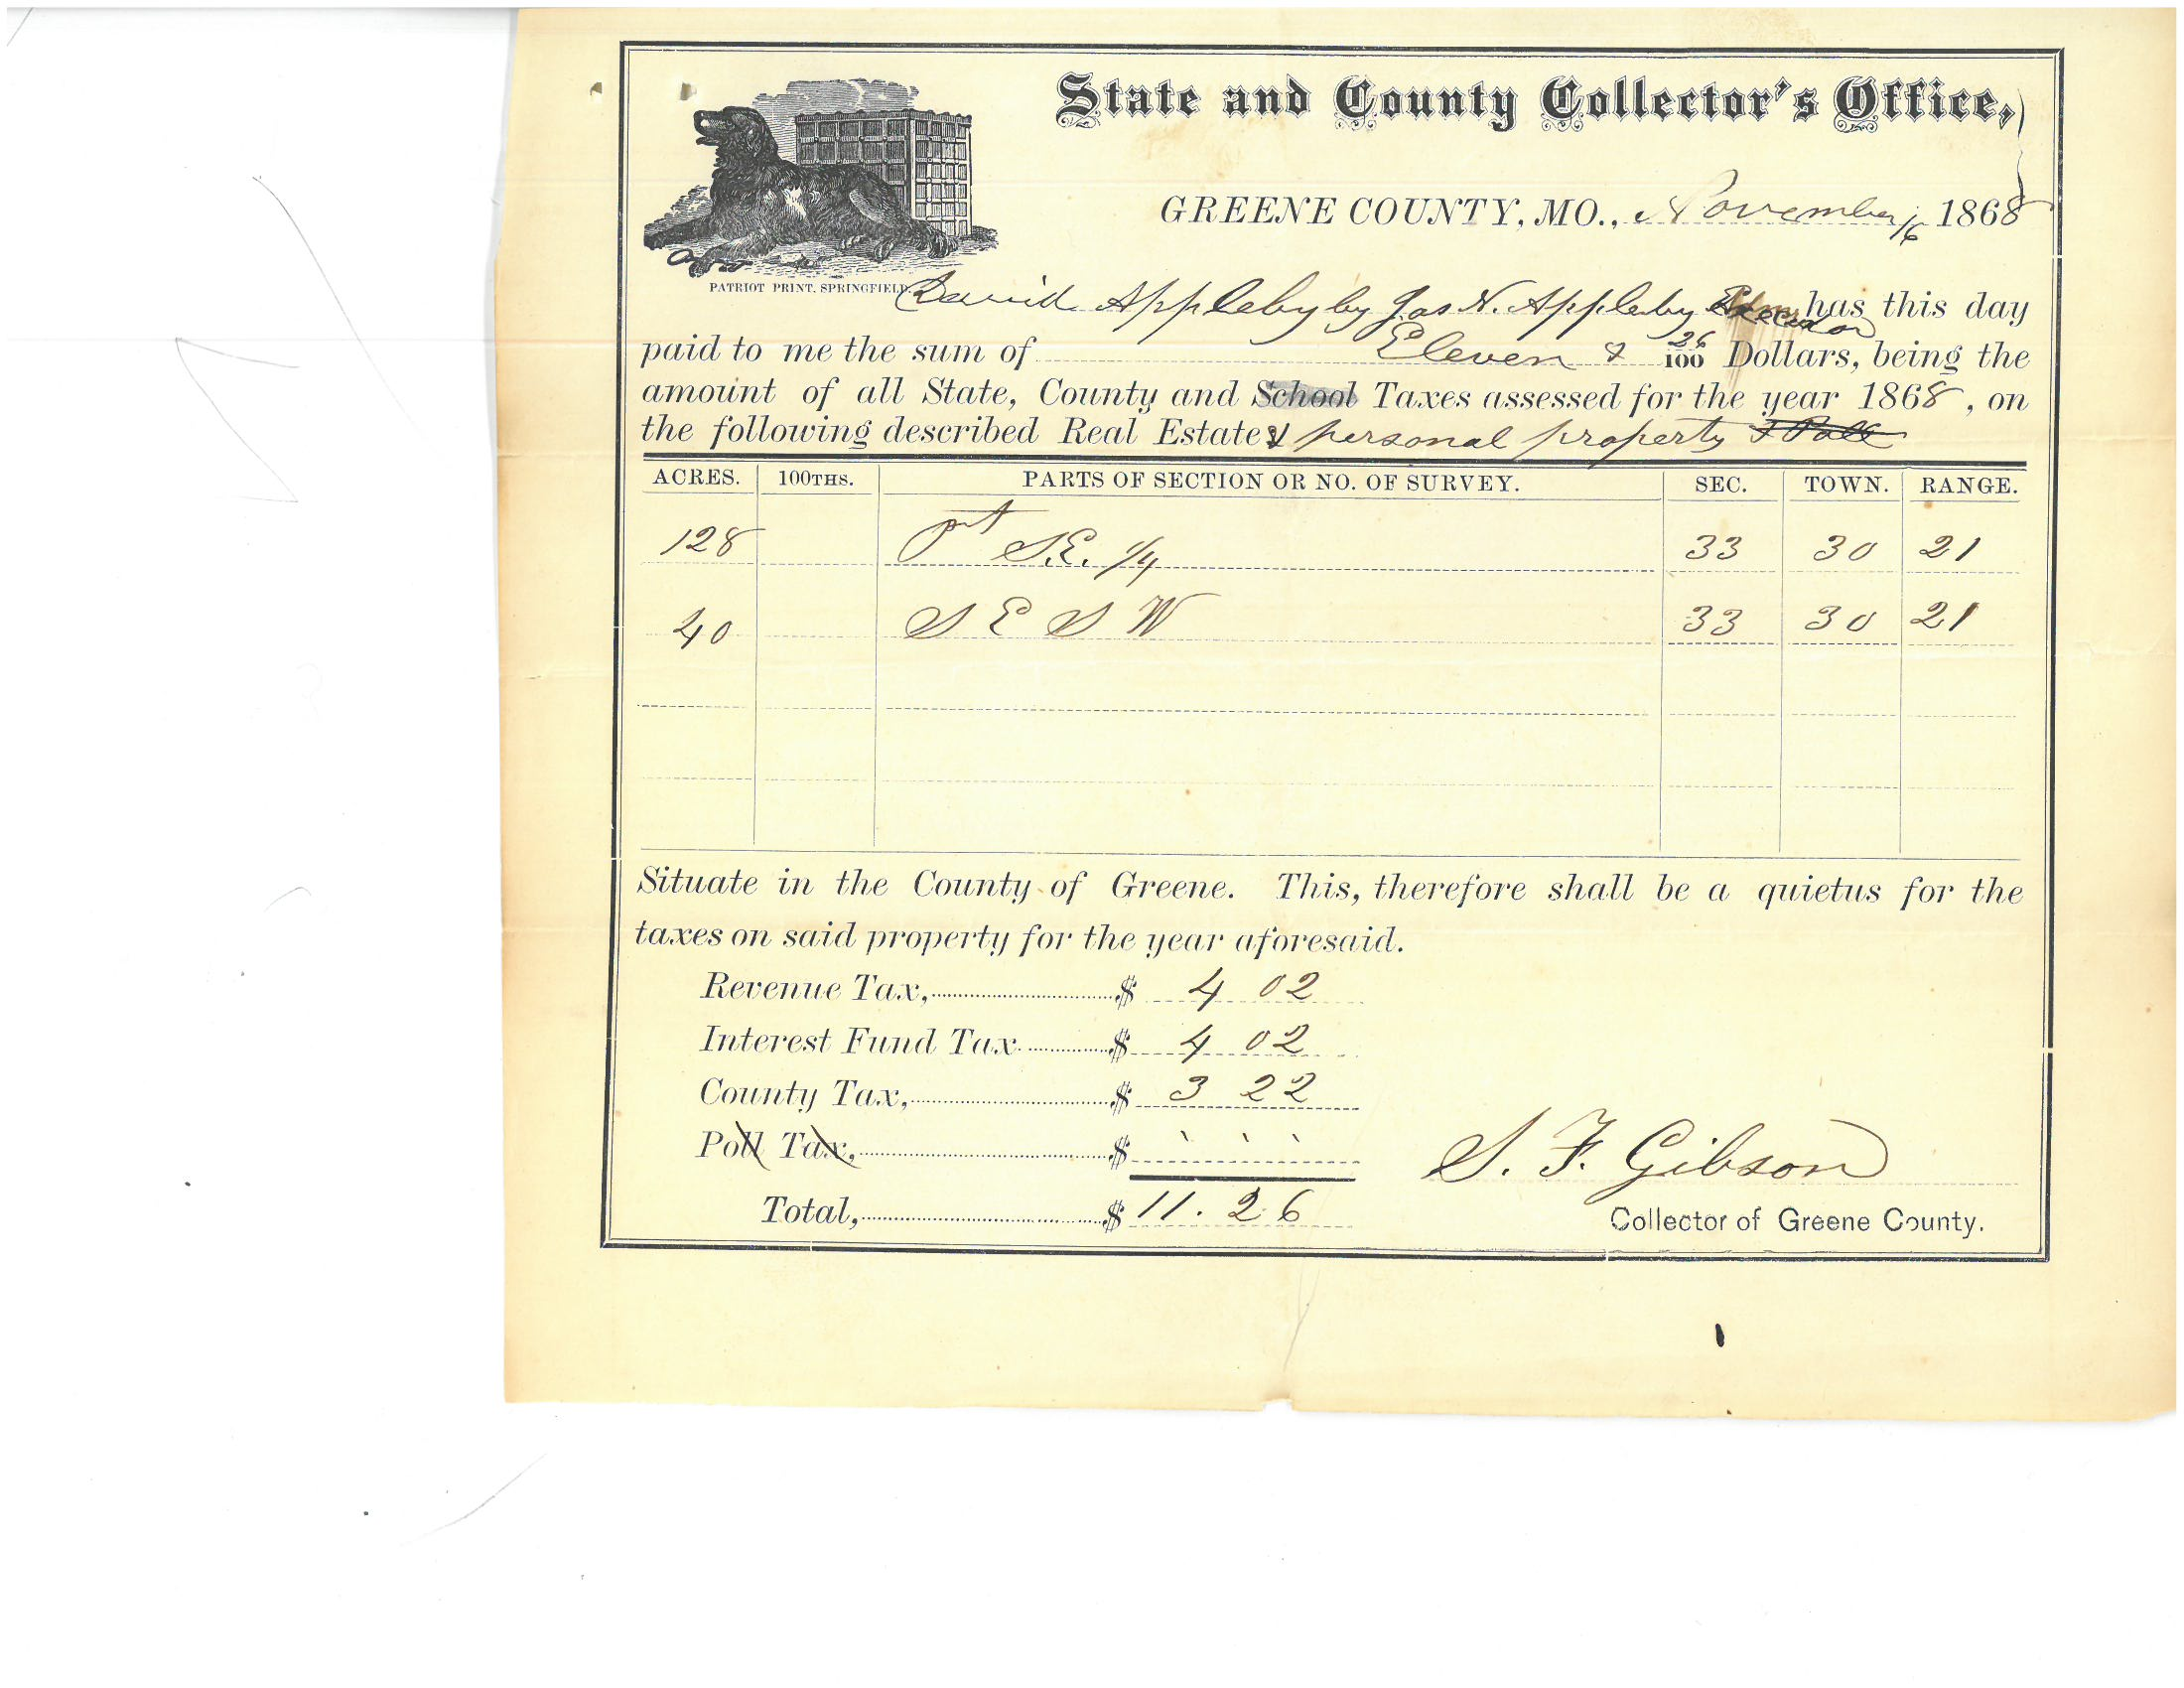 State and County Collector's Office,
GREENE COUNTY, MO., November 16 1868
PATRIOT PRINT, SPRINGFIELD.
David Appleby by Jas N. Appleby Executor has this day
paid to me the sum of Eleven & 26/100 Dollars, being the
amount of all State, County and School Taxes assessed for the year 1868, on
the following described Real Estate & personal property & Poll
ACRES. 100THS. PARTS OF SECTION OR NO. OF SURVEY. SEC. TOWN. RANGE.
128 pt S.E. 1/4 33 30 21
40 S E S W 33 30 21
Situate in the County of Greene. This, therefore shall be a quietus for the
taxes on said property for the year aforesaid.
Revenue Tax, $ 4 02
Interest Fund Tax $ 4 02
County Tax, $ 3 22
Poll Tax, $
S. F. Gibson
Total, $ 11.26
Collector of Greene County.